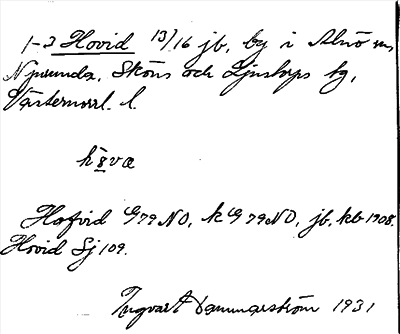 1-3 Hovid 13/16 jb, by i Alnö sn
Njurunda, Sköns och Ljustorps tg,
Västernorrl. l.
Hofvid G79NO, k G79NO, jb, kb 1908.
Hovid Sj 109.
Ingvart Dannerström 1931